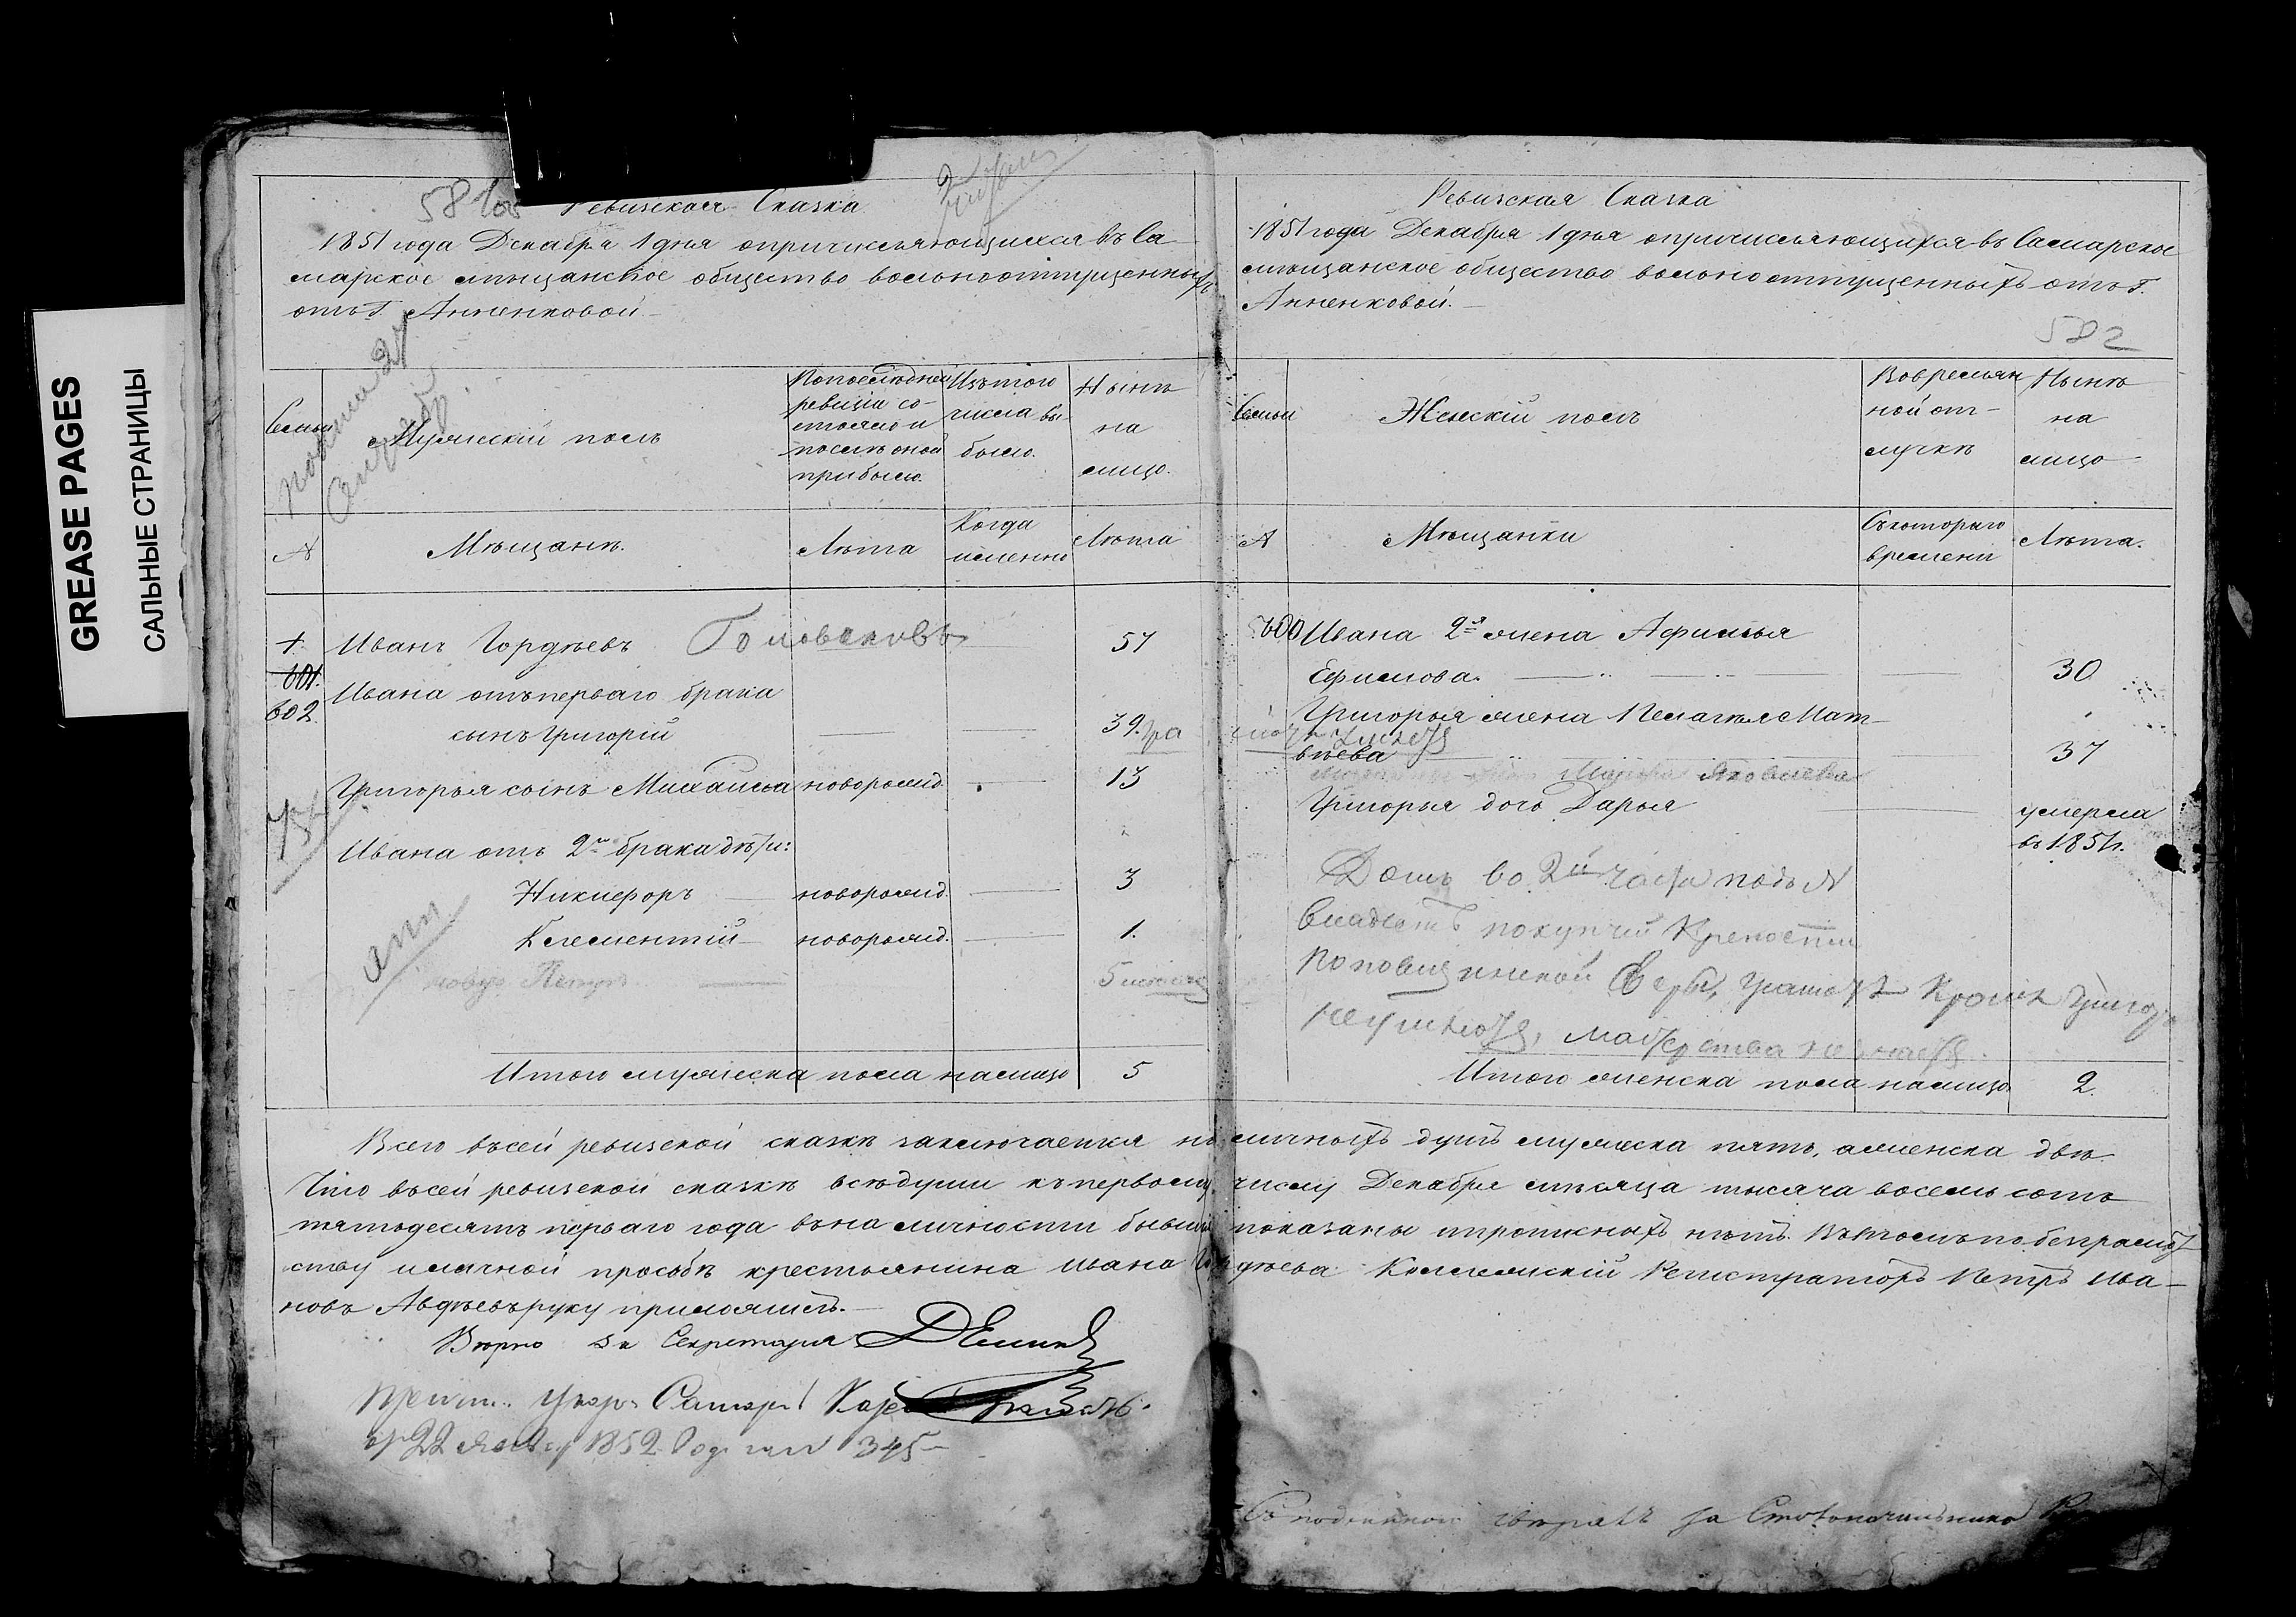 GREASE PAGES
САЛЬНЫЕ СТРАНИЦЫ
581об
Ревизская Сказка
1851 года Декабря 1 дня опричисляющихся въ Са
марское мѣщанское общество вольноотпущенныхъ
отъ Г. Анненковой
Семьи
Мужескій полъ
По последней ревизіи со-стояло и после оной прибыло.
Изъ того числа вы-было.
Нынѣ на лицо.
№
Мѣщане.
Лѣта
Когда именно
Лѣта
1.
Иванъ Гордѣевъ Головачовъ
57
601.
602.
Ивана отъ перваго брака
сынъ Григорій
39.
Григорья сынъ Михаила новорожд.
13
Ивана отъ 2го брака дѣти:
Никифоръ новорожд.
3
Клементій новорожд.
1.
Петръ
5
Итого мужеска пола на лицо 5
Ревизская Сказка
1851 года Декабря 1 дня опричисляющихся въ Самарское
мѣщанское общество вольноотпущенныхъ отъ Г.
Анненковой.
582
Семьи
Женскій полъ
Во времян ной от-лучкѣ
Нынѣ на лицо
№
Мѣщанки
Съ котораго времени
Лѣта.
600
Ивана 2я жена Афимья
Ефимова.
30
Григорья жена Пелагея Мат-
вѣева
37
Яковлева
Григорья дочь Дарья
умерла въ 1851 г.
Домъ во 2й части подъ №
владеетъ по купчей крепости
Поповщинской веры, Кроме
Итого женска пола на лицо 2.
Всего въ сей ревизской сказкѣ заключается наличныхъ душъ мужеска пять, а женска двѣ
Что въ сей ревизской сказкѣ всѣ души къ первому числу Декабря мѣсяца тысяча восемь сотъ
пятьдесятъ перваго года въ наличности бывшія показаны и прописныхъ нѣтъ. Въ томъ по безграмот
ству и личной прозьбѣ крестьянина Ивана Гордѣева Коллежскій Регистраторъ Петръ Ива-
новъ Авдѣевъ руку приложилъ.
Вѣрно за Секретаря
22 1852 года № 345
Съ подлиннымъ за Столоначальника